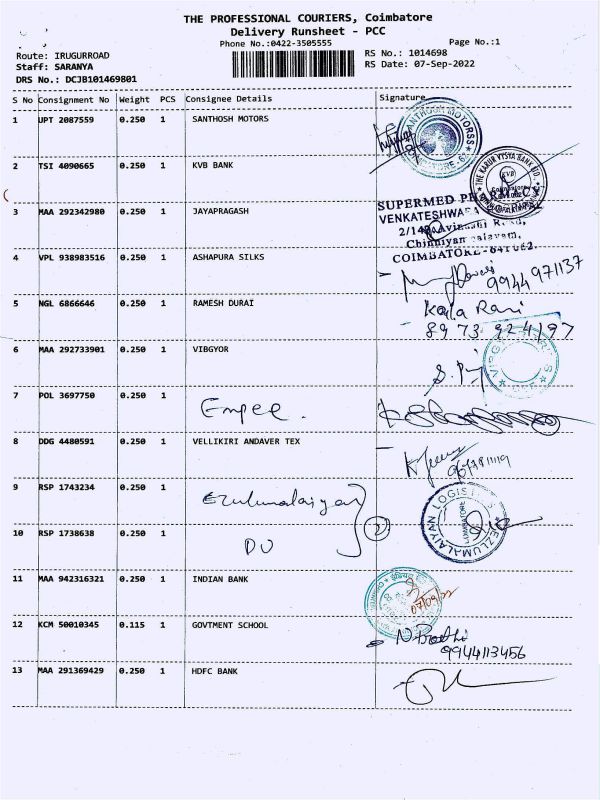 THE PROFESSIONAL COURIERS, Coimbatore
Delivery Runsheet - PCC
Phone No.:0422-3505555 Page No.:1
Route: IRUGURROAD RS No.: 1014698
Staff: SARANYA RS Date: 07-Sep-2022
DRS No.: DCJB101469801
S No Consignment No Weight PCS Consignee Details Signature
1 UPT 2087559 0.250 1 SANTHOSH MOTORS
SANTHOSH MOTORSS
2 TSI 4090665 0.250 1 KVB BANK
THE KARUR VYSYA BANK LTD.
KVB
3 MAA 292342980 0.250 1 JAYAPRAGASH
SUPERMED PHARMACY
VENKATESHWARA
2/140, Avinashi Road,
Chinniyampalayam,
COIMBATORE - 641 062.
4 VPL 938983516 0.250 1 ASHAPURA SILKS
9944 971137
5 NGL 6866646 0.250 1 RAMESH DURAI
Kala Rani
8973924197
6 MAA 292733901 0.250 1 VIBGYOR
7 POL 3697750 0.250 1 Empee.
8 DDG 4480591 0.250 1 VELLIKIRI ANDAVER TEX
9 RSP 1743234 0.250 1 Ezulumalaiyan
EZLUMALAIYAN LOGISTICS
10 RSP 1738638 0.250 1 DO 2
11 MAA 942316321 0.250 1 INDIAN BANK
07/09/22
12 KCM 50010345 0.115 1 GOVTMENT SCHOOL
9944113456
13 MAA 291369429 0.250 1 HDFC BANK